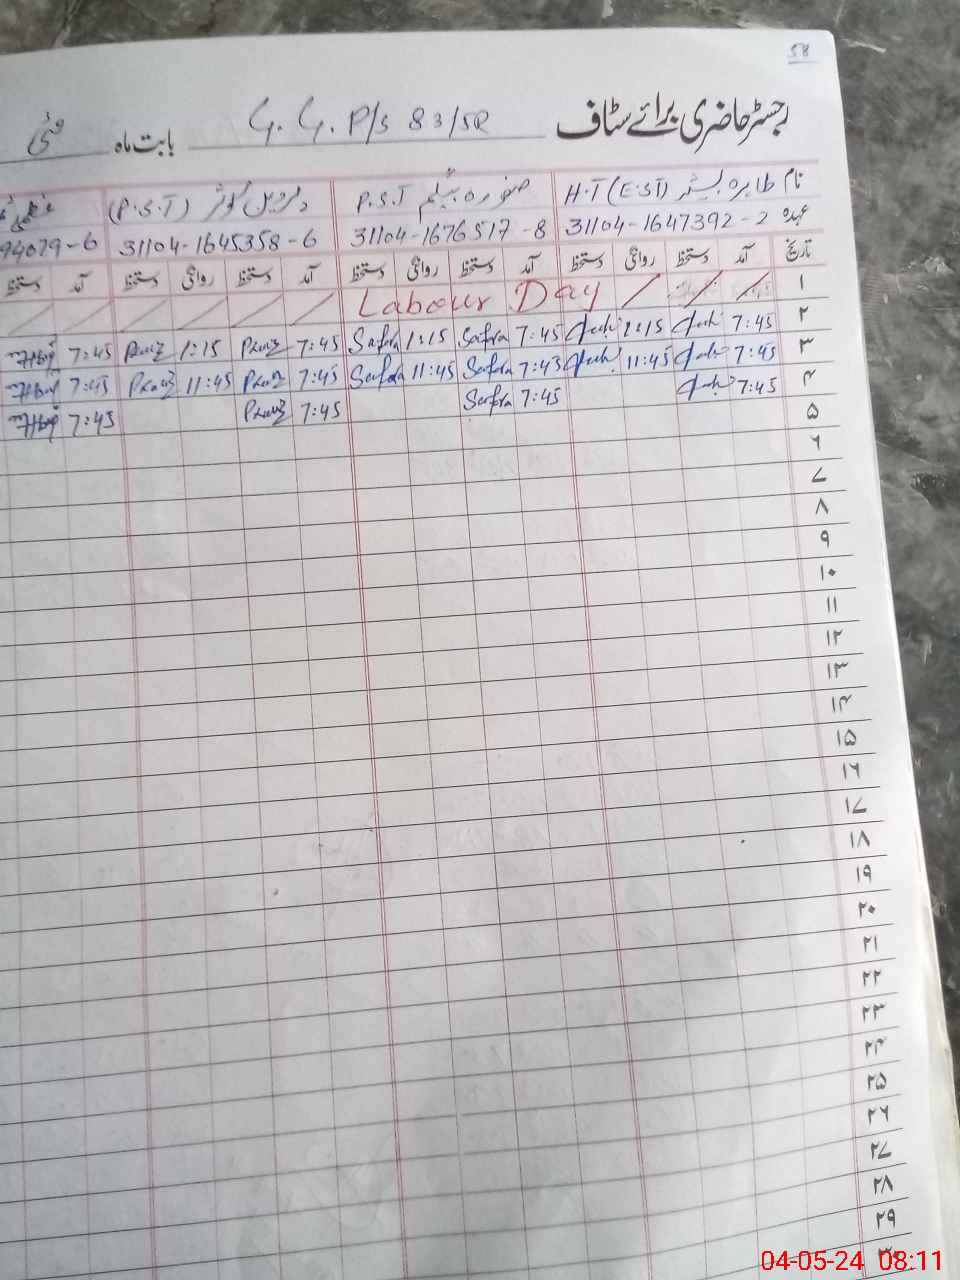 58
رجسٹر حاضری برائے سٹاف G. G. P/S 83/5R بابت ماہ مئی
نام طاہرہ بشیر H.T (E.S.T) صفورہ بیگم P.S.T پروین کوثر (P.S.T)
عہدہ 31104-1647392-2 31104-1676517-8 31104-1645358-6 94079-6
تاریخ آمد دستخط روانگی دستخط آمد دستخط روانگی دستخط آمد دستخط روانگی دستخط آمد دستخط
۱ Labour Day
۲ 7:45 1:15 7:45 Safora 1:15 Safora 7:45 1:15 7:45
۳ 7:45 11:45 7:45 Safora 11:45 Safora 7:45 11:45 7:45
۴ 7:45 7:45 Safora 7:45 7:45
۵
۶
۷
۸
۹
۱۰
۱۱
۱۲
۱۳
۱۴
۱۵
۱۶
۱۷
۱۸
۱۹
۲۰
۲۱
۲۲
۲۳
۲۴
۲۵
۲۶
۲۷
۲۸
۲۹
04-05-24 08:11